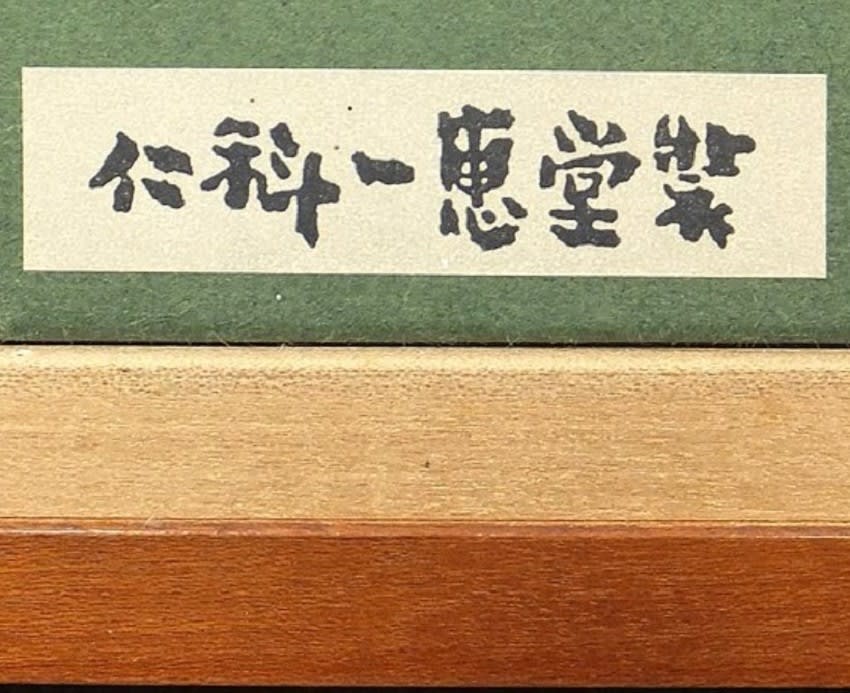 仁科一惠堂装